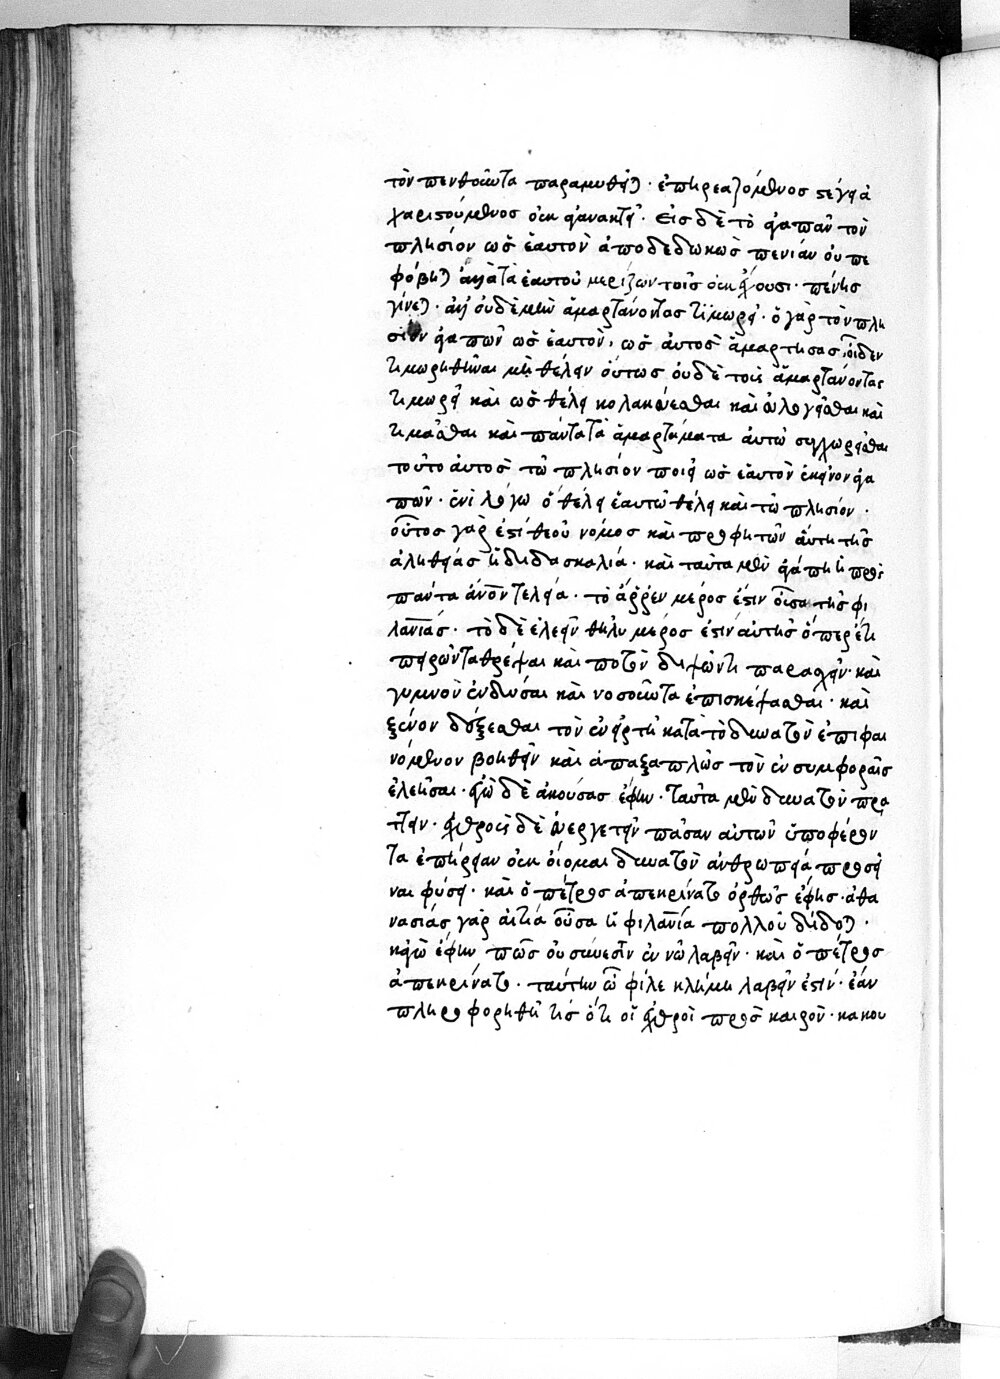 τὸν πενθοῦντα παραμυθεῖται· ἐπηρεαζόμενος στέγει ἃ
χαριζούμενος οὐκ ἀγανακτεῖ· εἰς δὲ τὸ ἀγαπᾶν τὸν
πλησίον ὡς ἑαυτὸν ἀποδεδωκὼς πενίαν οὐ πε
φόβηται ἀλλὰ τὰ ἑαυτοῦ μερίζων τοῖς οὐκ ἔχουσι· πένης
γίνεται· ἀλλ' οὐδὲ μὴν ἁμαρτάνοντας τιμωρεῖ· ὁ γὰρ τὸν πλη
σίον ἀγαπῶν ὡς ἑαυτὸν, ὡς αὐτὸς ἁμαρτήσας, οἶδεν
τιμωρηθῆναι μὴ θέλειν οὕτως οὐδὲ τοὺς ἁμαρτάνοντας
τιμωρεῖ καὶ ὡς θέλει κολακεύεσθαι καὶ εὐλογεῖσθαι καὶ
τιμᾶσθαι καὶ πάντα τὰ ἁμαρτήματα αὐτῷ συγχωρεῖσθαι
τοῦτο αὐτὸς τῷ πλησίον ποιεῖ ὡς ἑαυτὸν ἐκεῖνον ἀγα
πῶν· ἑνὶ λόγῳ ὃ θέλει ἑαυτῷ θέλει καὶ τῷ πλησίον·
οὗτος γάρ ἐστι θεοῦ νόμος καὶ προφητῶν αὕτη τῆς
ἀληθείας ἡ διδασκαλία· καὶ ταῦτα μὲν ἀγάπη ἡ πρὸς
πάντα ἄνον τελεία· τὸ ἄρρεν μέρος ἐστὶν οὖσα τῆς φι
λανίας· τὸ δὲ ἐλεεῖν θῆλυ μέρος ἐστὶν αὐτῆς ὅπερ ἐστὶ
πεινῶντα θρέψαι καὶ ποτὸν διψῶντι παρασχεῖν· καὶ
γυμνὸν ἐνδῦσαι καὶ νοσοῦντα ἐπισκέψασθαι· καὶ
ξένον δέξεσθαι τὸν ἐν εἱρκτῇ κατὰ τὸ δυνατὸν ἐπιφαι
νόμενον βοηθεῖν καὶ ἁπαξαπλῶς τὸν ἐν συμφοραῖς
ἐλεῆσαι· ἐγὼ δὲ ἀκούσας ἔφην· ταῦτα μὲν δυνατὸν πρά
ττειν· ἐχθροὺς δὲ εὐεργετεῖν πᾶσαν αὐτῶν ὑποφέρον
τα ἐπήρειαν οὐκ οἴομαι δυνατὸν ἀνθρωπείᾳ προσεῖ
ναι φύσει· καὶ ὁ πέτρος ἀπεκρίνατο ὀρθῶς ἔφης· ἀθα
νασίας γὰρ αἰτία οὖσα ἡ φιλανία πολλοῦ δίδοται·
κἀγὼ ἔφην πῶς οὖν αὐτὴν ἔστιν ἐν νῷ λαβεῖν· καὶ ὁ πέτρος
ἀπεκρίνατο· ταύτην ὦ φίλε κλήμη λαβεῖν ἔστιν· ἐάν
πληροφορηθῇ τὶς ὅτι οἱ ἐχθροὶ πρὸς καιρὸν· κακου